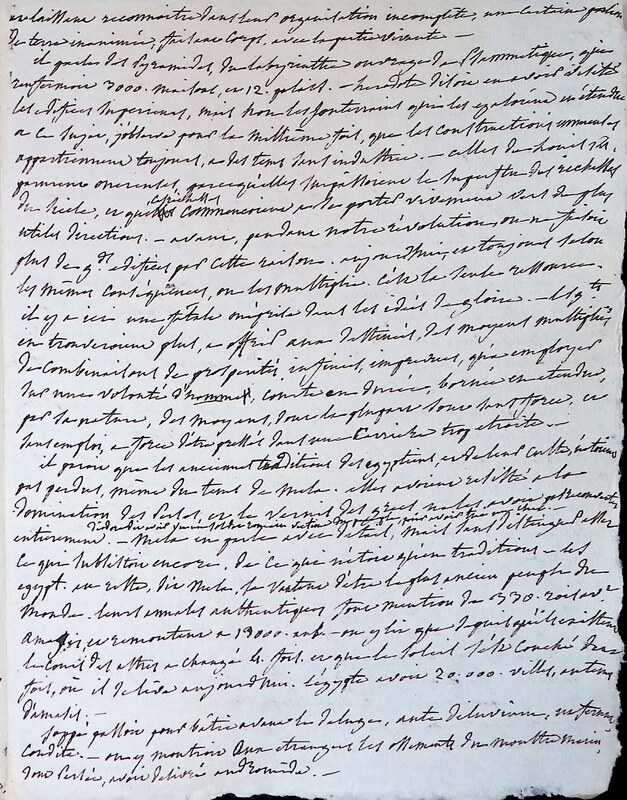 en laissant reconnoitre dans leur organisation incomplete, une certaine portion
de terre inanimée, faisant corps, avec la partie vivante –
il parle des pyramides, du labyrinthe ouvrage de Psammetique, qui
renfermoit 3000. maisons, et 12. palais. – herodote disoit en avoir visité
les édifices superieurs, mais non les souterrains qui les égaloient en étendue
a ce sujet, j'observe pour la millième fois, que les constructions immenses
appartiennent toujours, a des tems sans industrie. – celles de Louis 14.
parurent onereuses, parcequ'elles surpassoient le superflu des richesses
du siècle, et que ces richesses commencoient a se porter vivement vers de plus
utiles directions. – avant, pendant notre révolution, on ne faisoit
plus de gds édifices par cette raison. aujourd'hui, et toujours selon
les mêmes conséquences, on les multiplie. C'est la seule ressource.
il y a ici une fatale méprise dans les idées de gloire. – les gds
en trouveroient plus, a offrir aux destinées, des moyens multipliés
de combinaisons de prosperités infinies, imprevues, qu'a employer
sur une volonté d'homme, courte en durée, bornée en étendue
par sa nature, des moyens, dont la plupart sont sans force, et
sans emploi, a force d'être pressés dans une carrière trop étroite. –
il paroit que les anciennes traditions des egyptiens, et de leur culte, n'étoient
pas perdues, même du tems de Mela. elles avoient resisté a la
domination des Perses, et le vernis des grecs, ne les avoit pas recouvertes
Diodore avoit vu un soldat romain victime du peuple, pour avoir tué un chat.
entierement. – Mela en parle avec détail, mais sans distinguer assez
ce qui subsistoit encore, de ce qui n'étoit qu'en traditions – les
egypt. au reste, dit Mela, se vantent d'être le plus ancien peuple du
monde. leurs annales authentiques font mention de 330. rois avt
Amasis, et remontent a 13000. ans – on y lit que depuis qu'ils existent
le cours des astres a changé 4. fois. et que le soleil s'est couché deux
fois, où il se lève aujourd'hui. l'egypte avoit 20,000. villes, au tems
d'amasis. –
Joppé passoit pour bâtie avant le deluge, ante diluvium, ut ferunt
condita. – on y montroit aux etrangers les ossements du monstre marin,
dont Persée, avoit délivré andromède. –